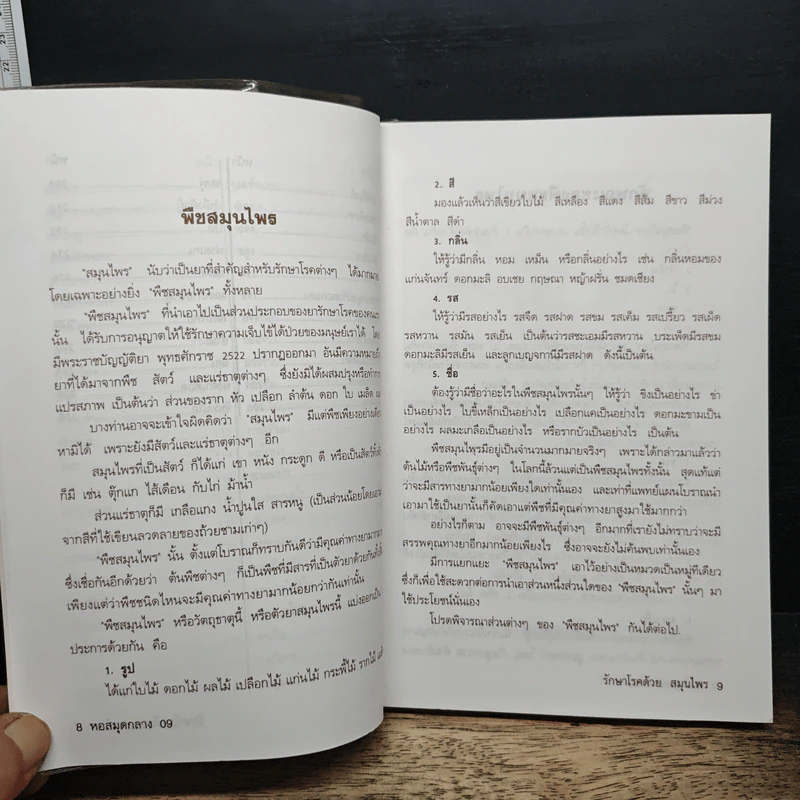 22
23
พืชสมุนไพร
"สมุนไพร" นับว่าเป็นยาที่สำคัญสำหรับรักษาโรคต่างๆ ได้มากมาย
โดยเฉพาะอย่างยิ่ง "พืชสมุนไพร" ทั้งหลาย
"พืชสมุนไพร" ที่นำเอาไปเป็นส่วนประกอบของยารักษาโรคของคนเรา
นั้น ได้รับการอนุญาตให้ใช้รักษาความเจ็บไข้ได้ป่วยของมนุษย์เราได้ โดย
มีพระราชบัญญัติยา พุทธศักราช 2522 ปรากฏออกมา อันมีความหมายถึง
ยาที่ได้มาจากพืช สัตว์ และแร่ธาตุต่างๆ ซึ่งยังมิได้ผสมปรุงหรือ
แปรสภาพ เป็นต้นว่า ส่วนของราก หัว เปลือก ลำต้น ดอก ใบ เมล็ด
บางท่านอาจจะเข้าใจผิดคิดว่า "สมุนไพร" มีแต่พืชเพียงอย่างเดียว
หามิได้ เพราะยังมีสัตว์และแร่ธาตุต่างๆ อีก
สมุนไพรที่เป็นสัตว์ ก็ได้แก่ เขา หนัง กระดูก ดี หรือเป็นสัตว์ทั้ง
ก็มี เช่น ตุ๊กแก ไส้เดือน กับไก่ ม้าน้ำ
ส่วนแร่ธาตุก็มี เกลือแกง น้ำปูนใส สารหนู (เป็นส่วนน้อยโดยเอา
จากสีที่ใช้เขียนลวดลายของถ้วยชามเก่าๆ)
"พืชสมุนไพร" นั้น ตั้งแต่โบราณก็ทราบกันดีว่ามีคุณค่าทางยามากมาย
ซึ่งเชื่อกันอีกด้วยว่า ต้นพืชต่างๆ ก็เป็นพืชที่มีสารที่เป็นตัวยาด้วยกันทั้ง
เพียงแต่ว่าพืชชนิดไหนจะมีคุณค่าทางยามากน้อยกว่ากันเท่านั้น
"พืชสมุนไพร" หรือวัตถุธาตุนี้ หรือตัวยาสมุนไพรนี้ แบ่งออกเป็น
ประการด้วยกัน คือ
1. รูป
ได้แก่ใบไม้ ดอกไม้ ผลไม้ เปลือกไม้ แก่นไม้ กระพี้ไม้ รากไม้
8 หอสมุดกลาง 09
2. สี
มองแล้วเห็นว่าสีเขียวใบไม้ สีเหลือง สีแดง สีส้ม สีขาว สีม่วง
สีน้ำตาล สีดำ
3. กลิ่น
ให้รู้ว่ามีกลิ่น หอม เหม็น หรือกลิ่นอย่างไร เช่น กลิ่นหอมของ
แก่นจันทร์ ดอกมะลิ อบเชย กฤษณา หญ้าฝรั่น ชมดเชียง
4. รส
ให้รู้ว่ามีรสอย่างไร รสจืด รสฝาด รสขม รสเค็ม รสเปรี้ยว รสเผ็ด
รสหวาน รสมัน รสเย็น เป็นต้นว่ารสชะเอมมีรสหวาน บระเพ็ดมีรสขม
ดอกมะลิมีรสเย็น และลูกเบญจกานีมีรสฝาด ดังนี้เป็นต้น
5. ชื่อ
ต้องรู้ว่ามีชื่อว่าอะไรในพืชสมุนไพรนั้นๆ ให้รู้ว่า ขิงเป็นอย่างไร ข่า
เป็นอย่างไร ใบขี้เหล็กเป็นอย่างไร เปลือกแคเป็นอย่างไร ดอกมะขามเป็น
อย่างไร ผลมะเกลือเป็นอย่างไร หรือรากบัวเป็นอย่างไร เป็นต้น
พืชสมุนไพรมีอยู่เป็นจำนวนมากมายจริงๆ เพราะได้กล่าวมาแล้วว่า
ต้นไม้หรือพืชพันธุ์ต่างๆ ในโลกนี้ล้วนแต่เป็นพืชสมุนไพรทั้งนั้น สุดแท้แต่
ว่าจะมีสารทางยามากน้อยเพียงใดเท่านั้นเอง และเท่าที่แพทย์แผนโบราณนำ
เอามาใช้เป็นยานั้นก็คัดเอาแต่พืชที่มีคุณค่าทางยาสูงมาใช้มากกว่า
อย่างไรก็ตาม อาจจะมีพืชพันธุ์ต่างๆ อีกมากที่เรายังไม่ทราบว่าจะมี
สรรพคุณทางยาอีกมากน้อยเพียงไร ซึ่งอาจจะยังไม่ค้นพบเท่านั้นเอง
มีการแยกแยะ "พืชสมุนไพร" เอาไว้อย่างเป็นหมวดเป็นหมู่ทีเดียว
ซึ่งก็เพื่อใช้สะดวกต่อการนำเอาส่วนหนึ่งส่วนใดของ "พืชสมุนไพร" นั้นๆ มา
ใช้ประโยชน์นั่นเอง
โปรดพิจารณาส่วนต่างๆ ของ "พืชสมุนไพร" กันได้ต่อไป.
รักษาโรคด้วย สมุนไพร 9